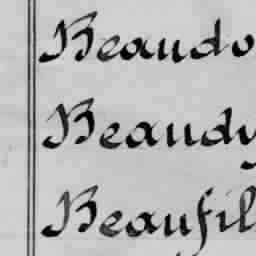 Beaudo
Beaudy
Beaufil